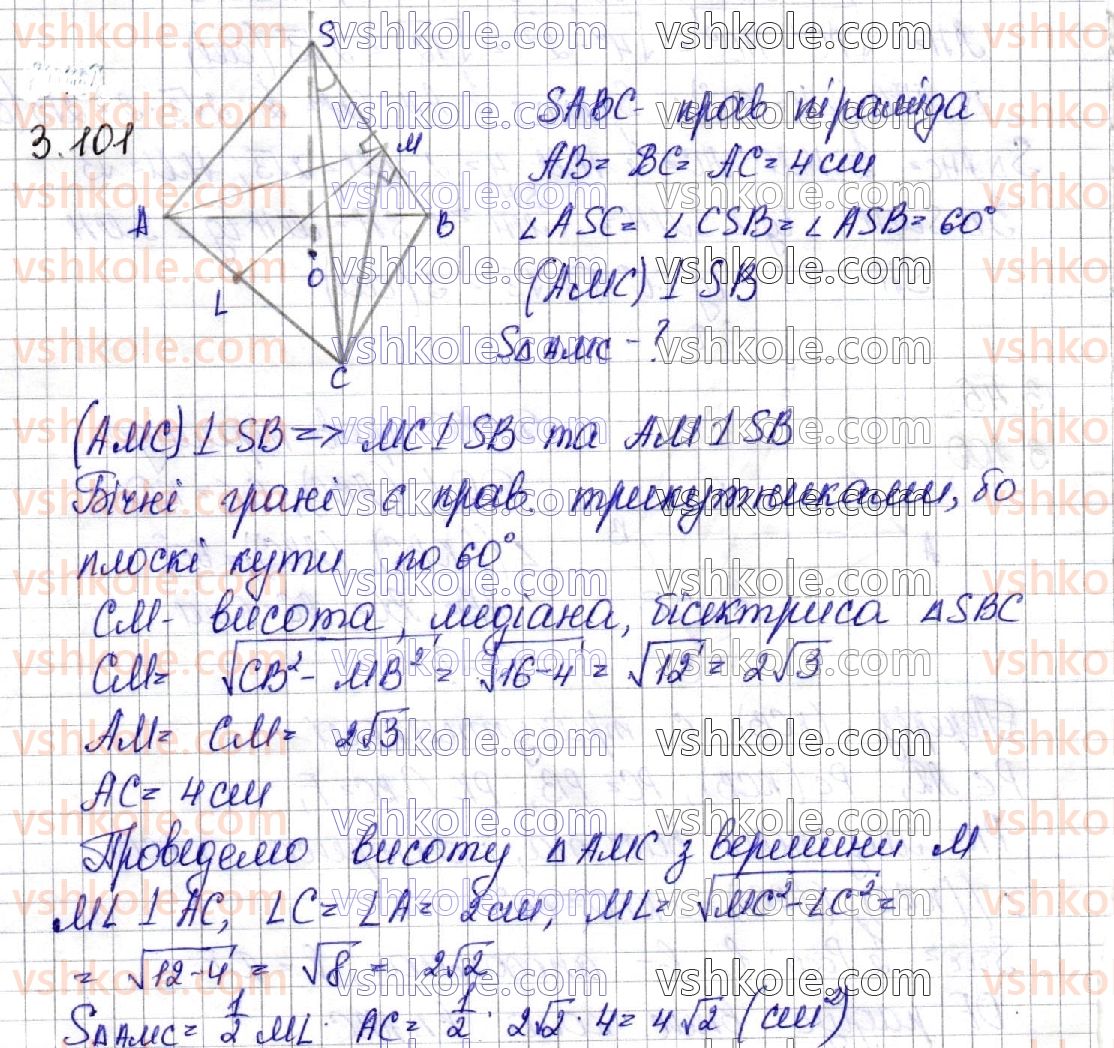 3.101
S
M
A
B
O
L
C
SABC - прав піраміда
AB = BC = AC = 4 см
∠ASC = ∠CSB = ∠ASB = 60°
(AMC) ⊥ SB
S△AMC - ?
(AMC) ⊥ SB => MC ⊥ SB та AM ⊥ SB
Бічні грані є прав. трикутниками, бо
плоскі кути по 60°
CM - висота, медіана, бісектриса △SBC
CM = √(CB² - MB²) = √(16-4) = √12 = 2√3
AM = CM = 2√3
AC = 4 см
Проведемо висоту △AMC з вершини M
ML ⊥ AC, LC = LA = 2 см, ML = √(MC² - LC²) =
= √(12-4) = √8 = 2√2
S△AMC = 1/2 ML · AC = 1/2 · 2√2 · 4 = 4√2 (см²)
vshkole.com